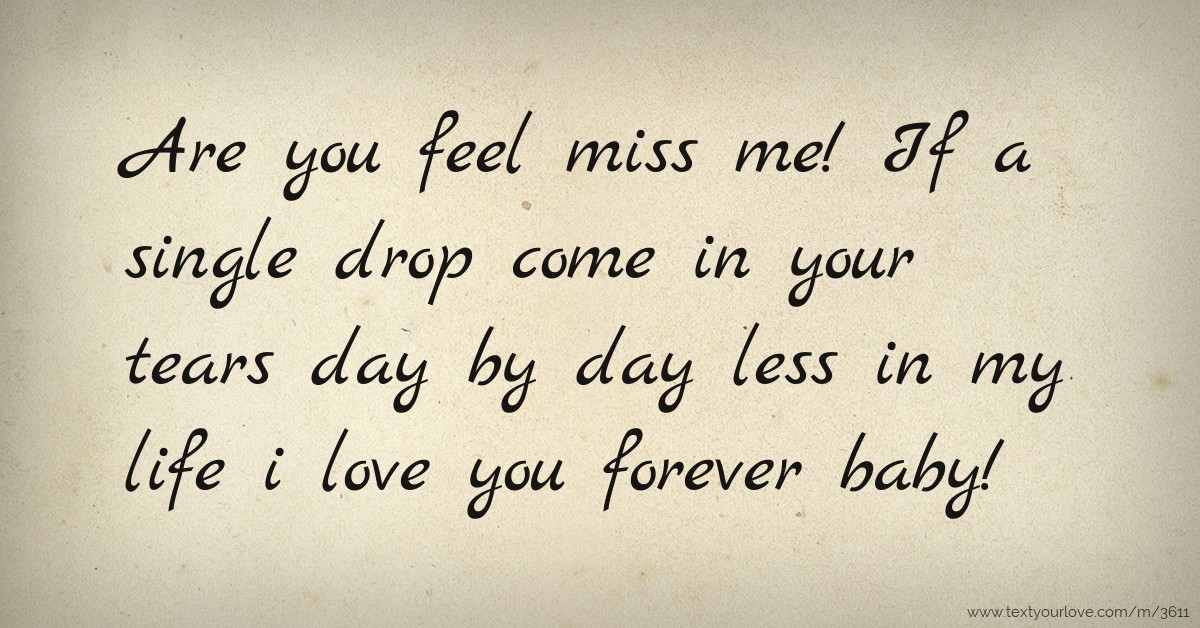 Are you feel miss me! If a
single drop come in your
tears day by day less in my
life i love you forever baby!
www.textyourlove.com/m/3611